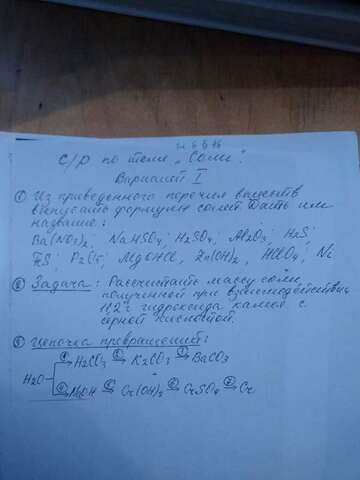 С/р по теме „Соли".
Вариант I
① Из приведенного перечня веществ
выписать формулы солей. Дать им
название:
Ba(NO3)2; NaHSO4; H2SO4; Al2O3; H2S;
FeS; P2O5; MgOHCl; Zn(OH)2; HClO4; Ni
② Задача: Рассчитайте массу соли,
полученной при взаимодействии
11,2г гидроксида калия с
серной кислотой.
③ Цепочка превращений:
① H2CO3 ② K2CO3 ③ BaCO3
H2O
④ NaOH ⑤ Cr(OH)2 ⑥ CrSO4 ⑦ Cr